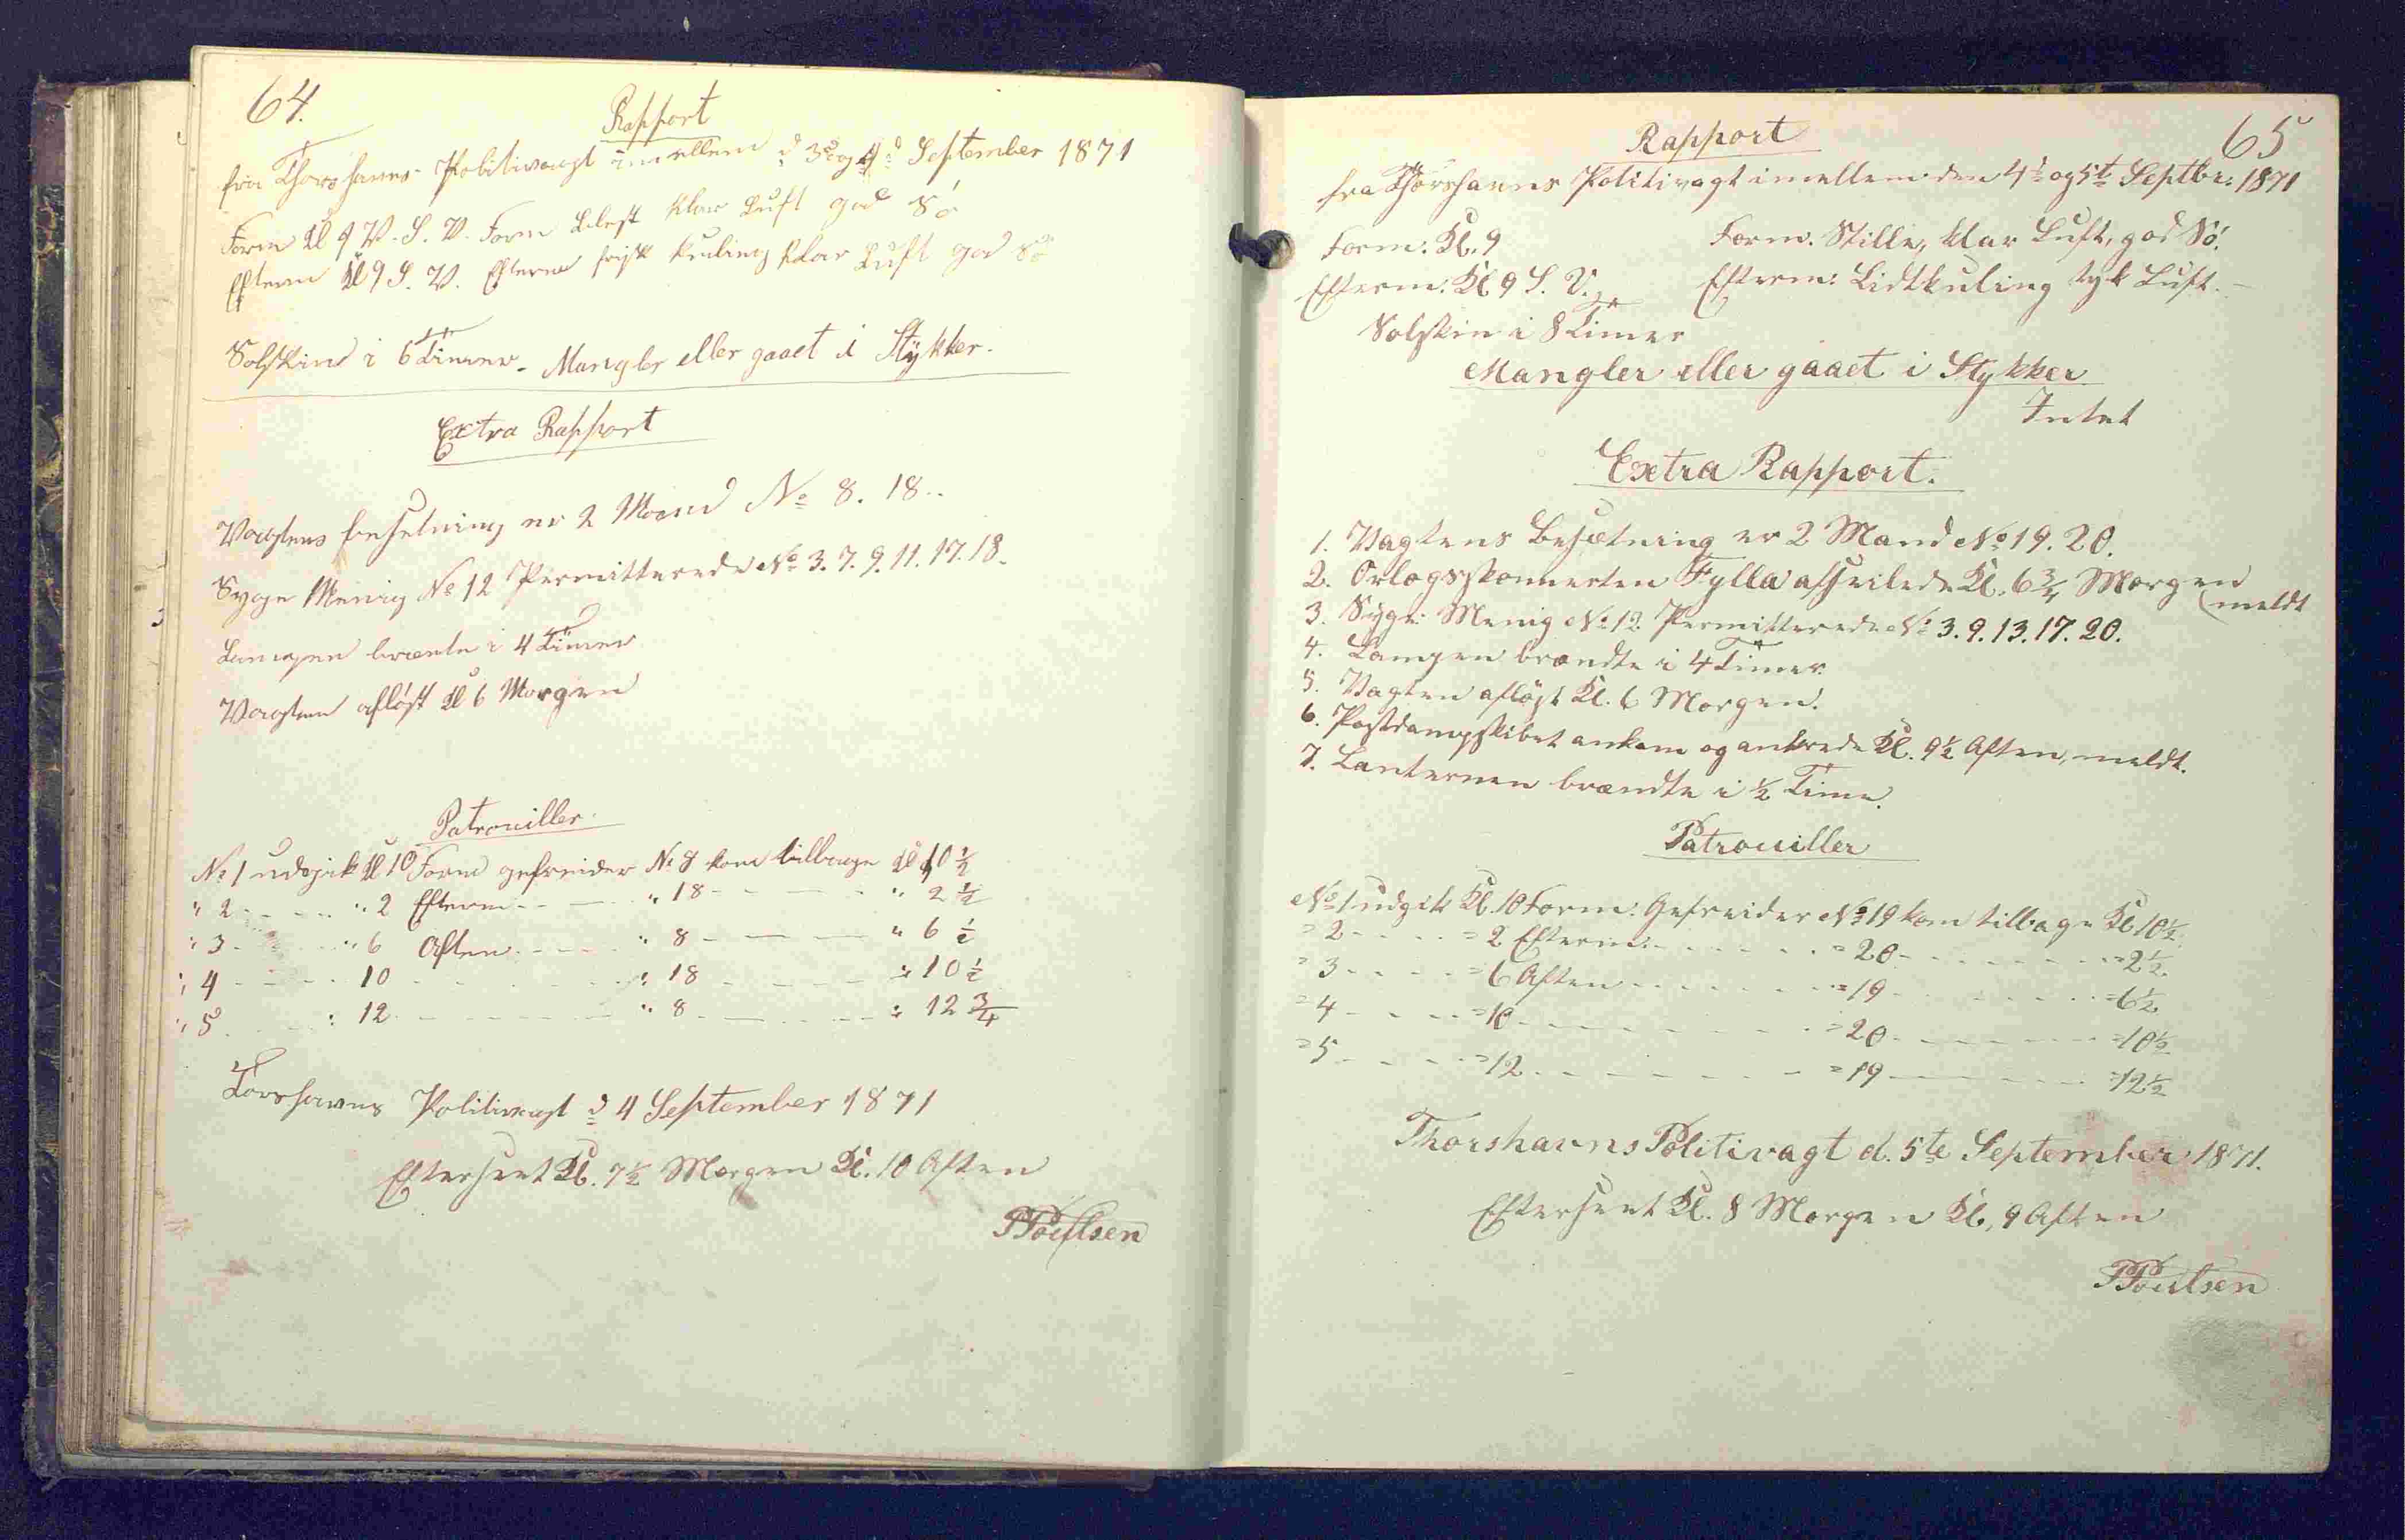 64.
Rapport
fra Thorshavns Politivagt imellem d 3d og 4d September 1871
Form Kl 9 V. S. V. Form Blest klar Luft god Sö
Efterm Kl 9 S. V. Efterm frisk kuling klar Luft god Sö
Solskin i 6 Timer - Mangler eller gaaet i Stykker.
Extra Rapport
Vagtens besetning er 2 Mand No 8. 18..
Syge Menig No 12 Permitterede No 3. 7. 9. 11. 17. 18.
Lampen brænte i 4 Timer
Vagten aflöst Kl 6 Morgen
Patrouiller.
No 1 udgik Kl 10 Form gefreider No 8 kom tilbage Kl 10 1/2
" 2 - - - - " 2 Efterm - - - - " 18 - - - - " 2 1/2
" 3 - - - - " 6 Aften - - - - " 8 - - - - " 6 1/2
" 4 - - - - 10 - - - - " 18 - - - - " 10 1/2
" 5 - - - - " 12 - - - - " 8 - - - - " 12 3/4
Torshavns Politivagt d 4 September 1871
Efterseet Kl. 7 1/2 Morgen Kl. 10 Aften
PPoulsen
65
Rapport
fra Thorshavns Politivagt imellem den 4de og 5te Septbr. 1871
Form. Kl. 9 Form. Stille, klar Luft, god Sö.
Efterm. Kl 9 S. V. Efterm: Lidt kuling tyk Luft. -
Solskin i 8 Timer
Mangler eller gaaet i Stykker
Intet
Extra Rapport.
1. Vagtens Besætning er 2 Mand No 19. 20.
2. Orlogsskonnerten Fylla afseilede Kl. 6 3/4 Morgen
(meldt
3. Syge: Menig No 12. Permitterede No 3. 9. 13. 17. 20.
4. Lampen brændte i 4 Timer.
5. Vagten aflöst Kl. 6 Morgen.
6. Postdampskibet ankom og ankrede Kl. 9 1/2 Aften, meldt.
7. Lanternen brændte i 1/2 Time.
Patrouiller
No 1 udgik Kl. 10 Form. Gefreider No 19 kom tilbage Kl 10 1/2
= 2 - - - - = 2 Efterm. - - - - = 20 - - - - = 2 1/2
= 3 - - - - = 6 Aften - - - - = 19 - - - - = 6 1/2
= 4 - - - - = 10 - - - - = 20 - - - - = 10 1/2
= 5 - - - - = 12 - - - - = 19 - - - - = 12 1/2
Thorshavns Politivagt d. 5te September 1871.
Efterseet Kl. 8 Morgen Kl. 9 Aften
PPoulsen